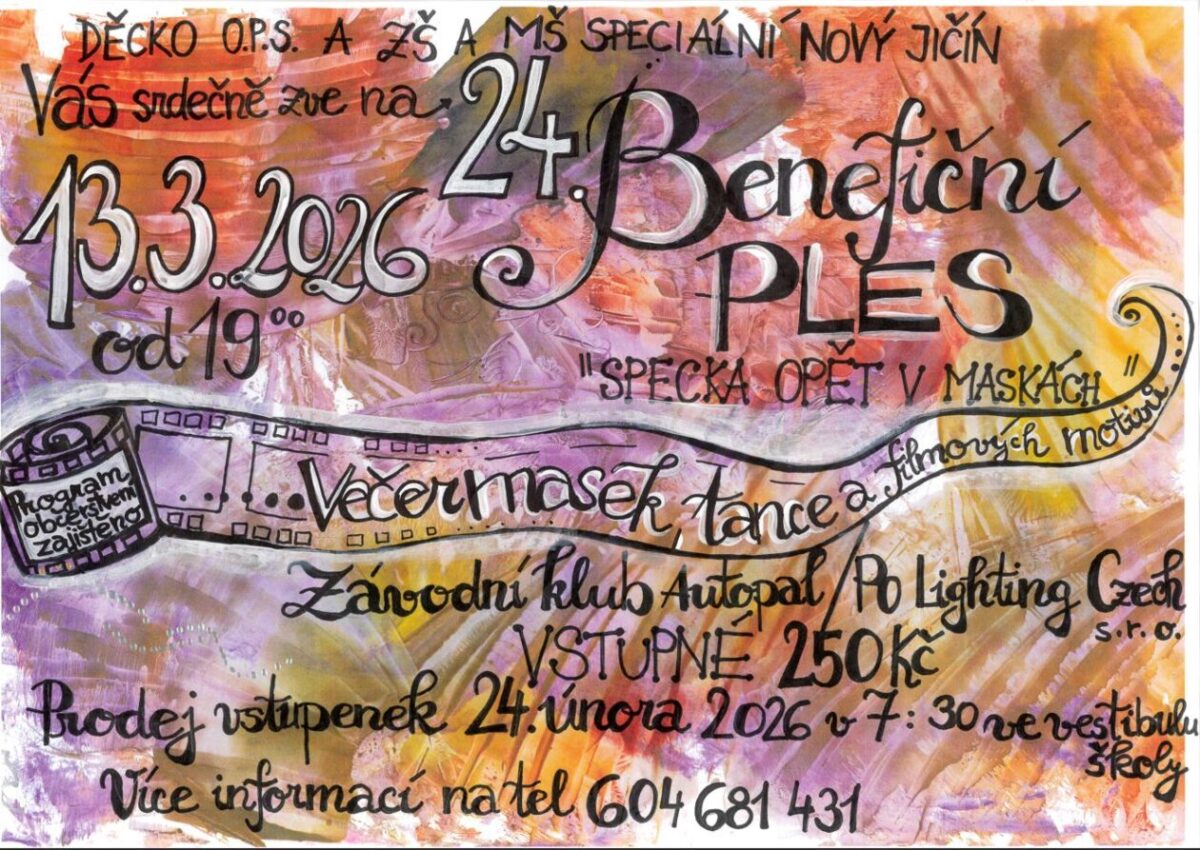 DĚCKO O.P.S. A ZŠ A MŠ SPECIÁLNÍ NOVÝ JIČÍN
Vás srdečně zve na
24. Benefiční
PLES
13.3.2026
od 19⁰⁰
"SPECKA OPĚT V MASKÁCH"
Program,
občerstvení
zajištěno
...Večer masek, tance a filmových motivů...
Závodní klub Autopal/Po Lighting Czech
s.r.o.
VSTUPNÉ 250Kč
Prodej vstupenek 24. února 2026 v 7:30 ve vestibulu
školy
Více informací na tel 604 681 431